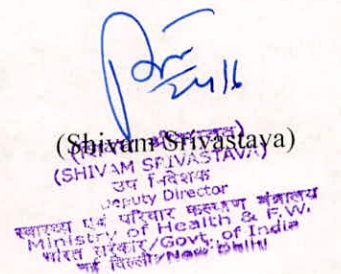 24/6
(Shivam Srivastava)
(SHIVAM SRIVASTAVA)
उप निदेशक
Deputy Director
स्वास्थ्य एवं परिवार कल्याण मंत्रालय
Ministry of Health & F.W.
भारत सरकार/Govt. of India
नई दिल्ली/New Delhi